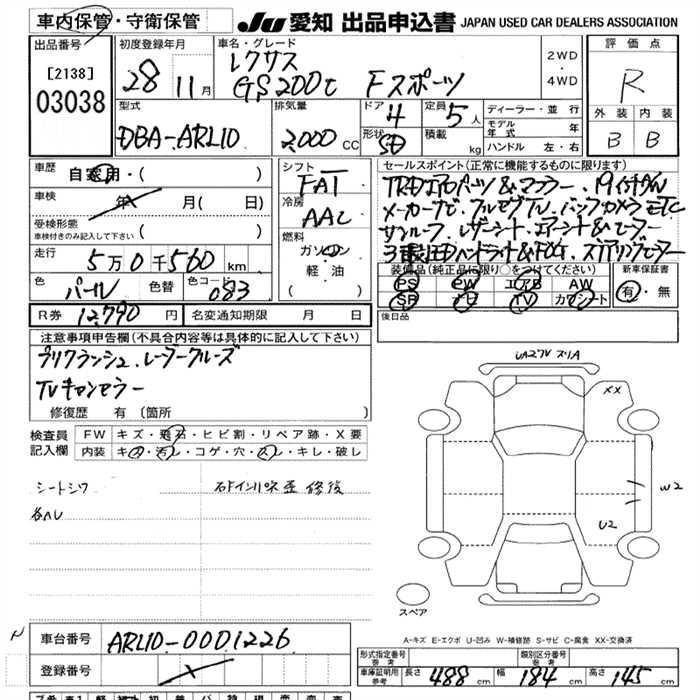 車内保管・守衛保管 JU 愛知 出品申込書 JAPAN USED CAR DEALERS ASSOCIATION
出品番号 初度登録年月 車名・グレード 評価点
[2138] 28 11月 レクサス 2WD・4WD R
03038 GS200t Fスポーツ
外装 内装
型式 排気量 ドア 4 定員 5人 ディーラー・並行
DBA-ARL10 2,000 CC 形状 SD 積載 kg モデル年式
ハンドル 左・右 B B
車歴 自家用・( ) シフト FAT セールスポイント(正常に機能するものに限ります)
車検 年 月( 日) 冷房 AAC TRDエアロパーツ&マフラー、19インチAW
受検形態 メーカーナビ・フルセグTV、バックカメラ ETC
車検付きのみ記入して下さい ( ) 燃料 サンルーフ、レザーシート、エアシート&ヒーター
走行 5万0千560km ガソリン 3眼LEDヘッドライト&FOG、ステアリングヒーター
色 パール 色替 色コード 083 軽・油 ( ) 装備品(純正品に限り○をつけてください) 新車保証書
PS PW エアB AW 有・無
SR ナビ TV カワシート
R券 12,790円 名変通知期限 月 日 後日品
注意事項申告欄(不具合内容等は具体的に記入して下さい)
プリクラッシュ、レーダークルーズ
TVキャンセラー
修復歴 有 (箇所 )
検査員記入欄 FW キズ・飛石・ヒビ割・リペア跡・X要
内装 キズ・汚レ・コゲ・穴・スレ・キレ・破レ
シートシワ 右ドインパネ歪 修後
各ヘレ
UA27V スリA
XX
W2
U2
スペア
A-キズ E-エクボ U-凹み W-補修跡 S-サビ C-腐食 XX-交換済
車台番号 ARL10-0001226
登録番号
型式指定番号 参考 類別区分番号 参考
車庫証明用 参考 長さ 488cm 幅 184cm 高さ 145cm